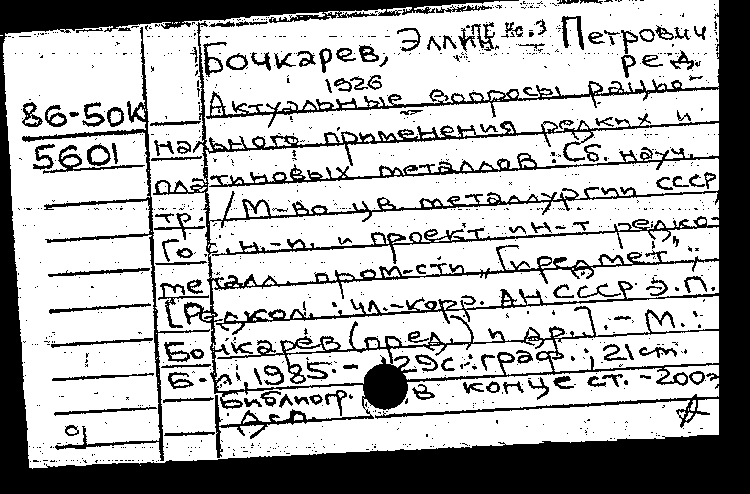 Бочкарев, Эллин Петрович
ред.
1926
86-50к
5601
Актуальные вопросы рацио-
нального применения редких и
платиновых металлов : Сб. науч.
тр. / М-во цв. металлургии СССР,
Гос. н.-и. и проект. ин-т редко-
металл. пром-сти „Гиредмет";
[Редкол. : чл.-корр. АН СССР Э.П.
Бочкарев (пред.) и др.]. - М. :
Б.и., 1985. - 129с. : граф. ; 21см.
Библиогр. в конце ст. - 200э